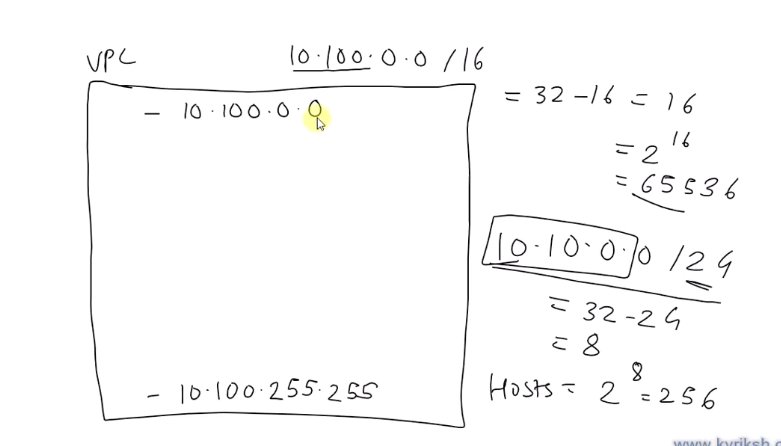 VPC 10.100.0.0 /16
- 10.100.0.0
- 10.100.255.255
= 32-16 = 16
= 2^16
= 65536
10.10.0.0 /24
= 32-24
= 8
Hosts = 2^8 = 256